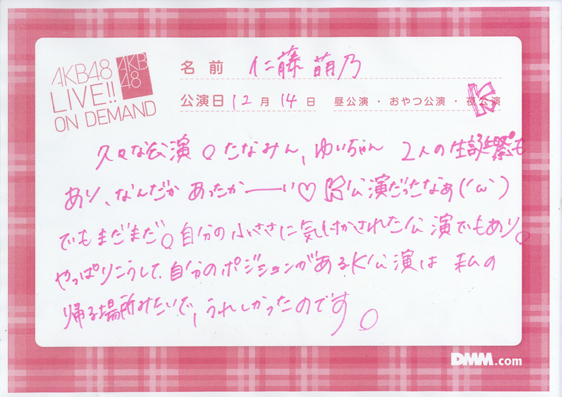 AKB48
LIVE!!
ON DEMAND
AKB
48
名前 仁藤萌乃
公演日 12月14日 昼公演・おやつ公演・夜公演
K
久々な公演。たなみん、ゆいちゃん 2人の生誕祭も
あり、なんだか あったかーーい♡ K公演だったなぁ('ω')
でもまだまだ。自分の小ささに気付かされた公演でもあり。
やっぱりこうして、自分のポジションがあるK公演は 私の
帰る場所みたいで、うれしかったのです。
DMM.com